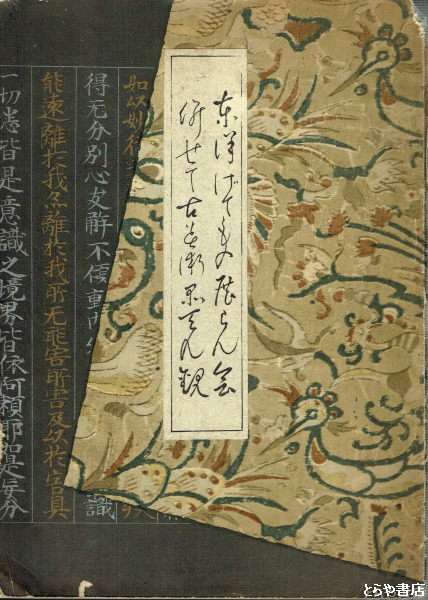 東洋げてもの展らん会
併せて古美術品てん観
如以妙
得无分別心安解不傾動内
識
能遠離於我念離於我所无能害所害及以於害具
一切悉皆是意識之境界皆依阿頼耶如是妄分
とらや書店